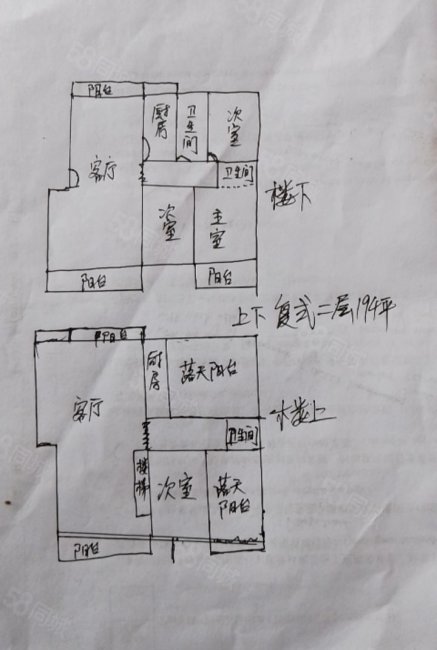 阳台
厨房
卫生间
次室
客厅
卫生间
楼下
次室
主室
阳台
阳台
上下复式二层194平
阳台
厨房
露天阳台
客厅
卫生间
楼上
楼梯
次室
露天阳台
阳台